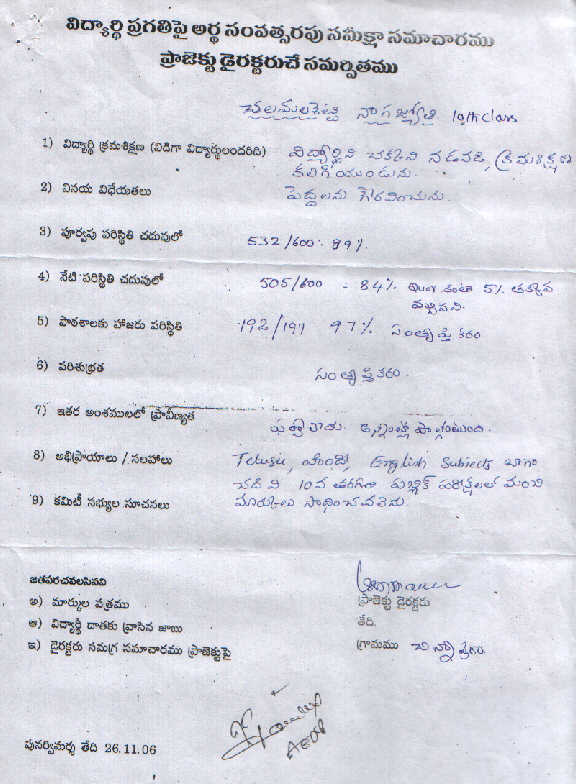 విద్యార్థి ప్రగతిపై అర్థ సంవత్సరపు సమీక్షా సమాచారము
ప్రాజెక్టు డైరక్టరుచే సమర్పితము
నాగజ్యోతి 10th class
1) విద్యార్థి క్రమశిక్షణ (విడిగా విద్యార్థులందరిది) విద్యార్థిని చక్కని నడవడి, క్రమశిక్షణ
కలిగియుండును.
2) వినయ విధేయతలు పెద్దలను గౌరవించును.
3) పూర్వపు పరిస్థితి చదువులో 532/600. 89%
4) నేటి పరిస్థితి చదువులో 505/600 - 84% కంటా 5% తక్కువ
వచ్చినవి.
5) పాఠశాలకు హాజరు పరిస్థితి 192/191 97% సంతృప్తికరం
6) పరిశుభ్రత సంతృప్తికరం.
7) ఇతర అంశములలో ప్రావీణ్యత బాగుంటుంది.
8) అభిప్రాయాలు / సలహాలు Telugu, హిందీ, English subjects బాగా
చదివి 10వ తరగతి పబ్లిక్ పరీక్షలలో మంచి
9) కమిటీ సభ్యుల సూచనలు మార్కులు సాధించవలెను
జతపరచవలసినవి
అ) మార్కుల పత్రము ప్రాజెక్టు డైరక్టరు
ఆ) విద్యార్థి దాతకు వ్రాసిన జాబు తేది.
ఇ) డైరక్టరు సమగ్ర సమాచారము ప్రాజెక్టుపై గ్రామము
పునర్విమర్శ తేది 26.11.06